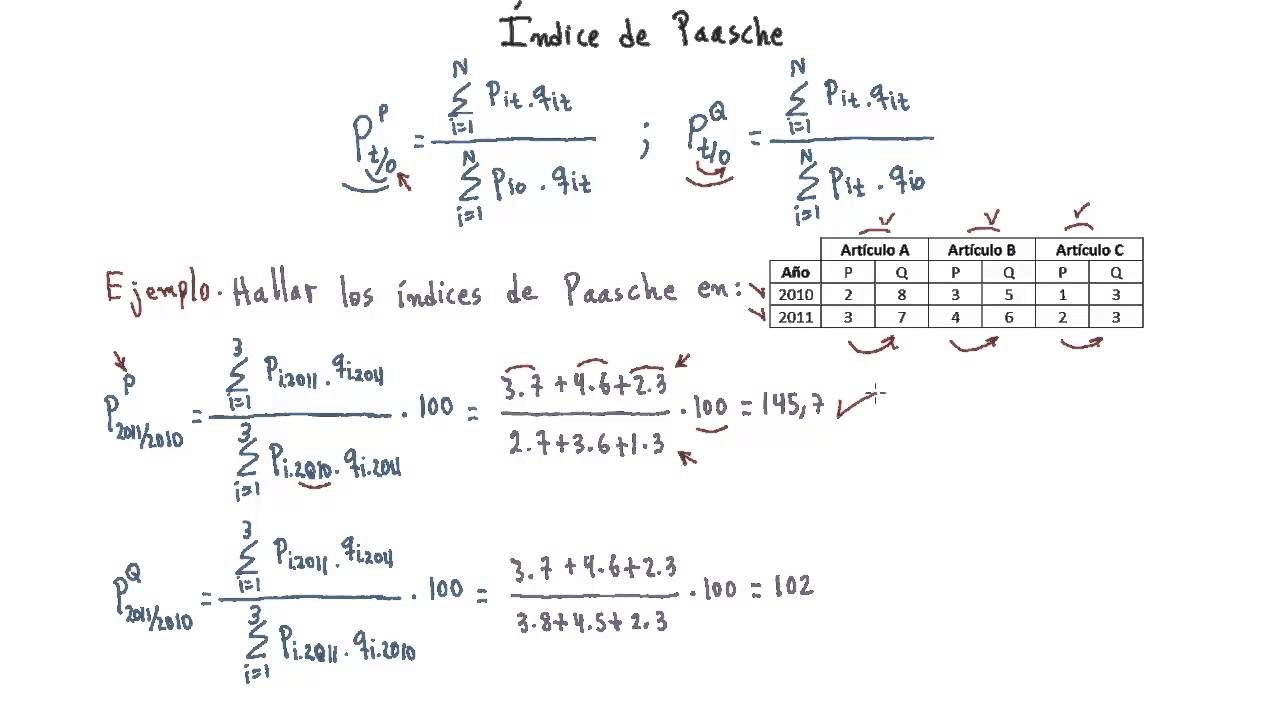 Índice de Paasche
P^P_{t/0} = \frac{\sum_{i=1}^{N} P_{it} \cdot q_{it}}{\sum_{i=1}^{N} P_{i0} \cdot q_{it}} ; P^Q_{t/0} = \frac{\sum_{i=1}^{N} P_{it} \cdot q_{it}}{\sum_{i=1}^{N} P_{it} \cdot q_{i0}}
Artículo A Artículo B Artículo C
Año P Q P Q P Q
2010 2 8 3 5 1 3
2011 3 7 4 6 2 3
Ejemplo. Hallar los índices de Paasche en:
P^P_{2011/2010} = \frac{\sum_{i=1}^{3} P_{i.2011} \cdot q_{i.2011}}{\sum_{i=1}^{3} P_{i.2010} \cdot q_{i.2011}} \cdot 100 = \frac{3.7+4.6+2.3}{2.7+3.6+1.3} \cdot 100 = 145,7
P^Q_{2011/2010} = \frac{\sum_{i=1}^{3} P_{i.2011} \cdot q_{i.2011}}{\sum_{i=1}^{3} P_{i.2011} \cdot q_{i.2010}} \cdot 100 = \frac{3.7+4.6+2.3}{3.8+4.5+2.3} \cdot 100 = 102